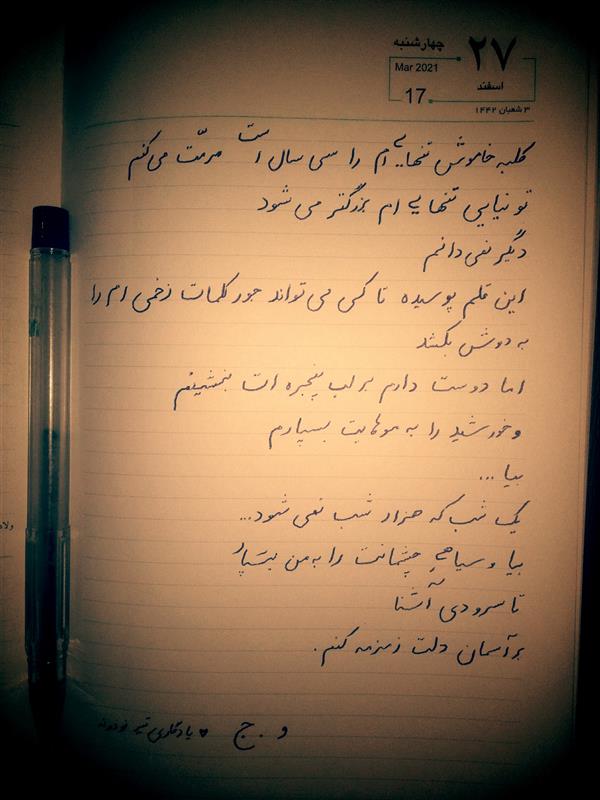 ۲۷ چهارشنبه
اسفند Mar 2021
17
۳ شعبان ۱۴۴۲
کلبه خاموش تنهایی‌ام را سی سال است مرمّت می‌کنم
تو نیایی تنهایی ام بزرگتر می شود
دگیر نمی دانم
این قلم پوسیده تا کی می تواند جور کلمات زخمی ام را
به دوش بکشد
اما دوست دارم بر لب پنجره ات بنشینم
و خورشید را به موهایت بسپارم
بیا ...
یک شب که هزار شب نمی شود...
بیا و سیاهیِ چشمانت را به من بسپار
تا سرودی آشنا
بر آسمان دلت زمزمه کنم.
و . ج
یادگاری
ولاد